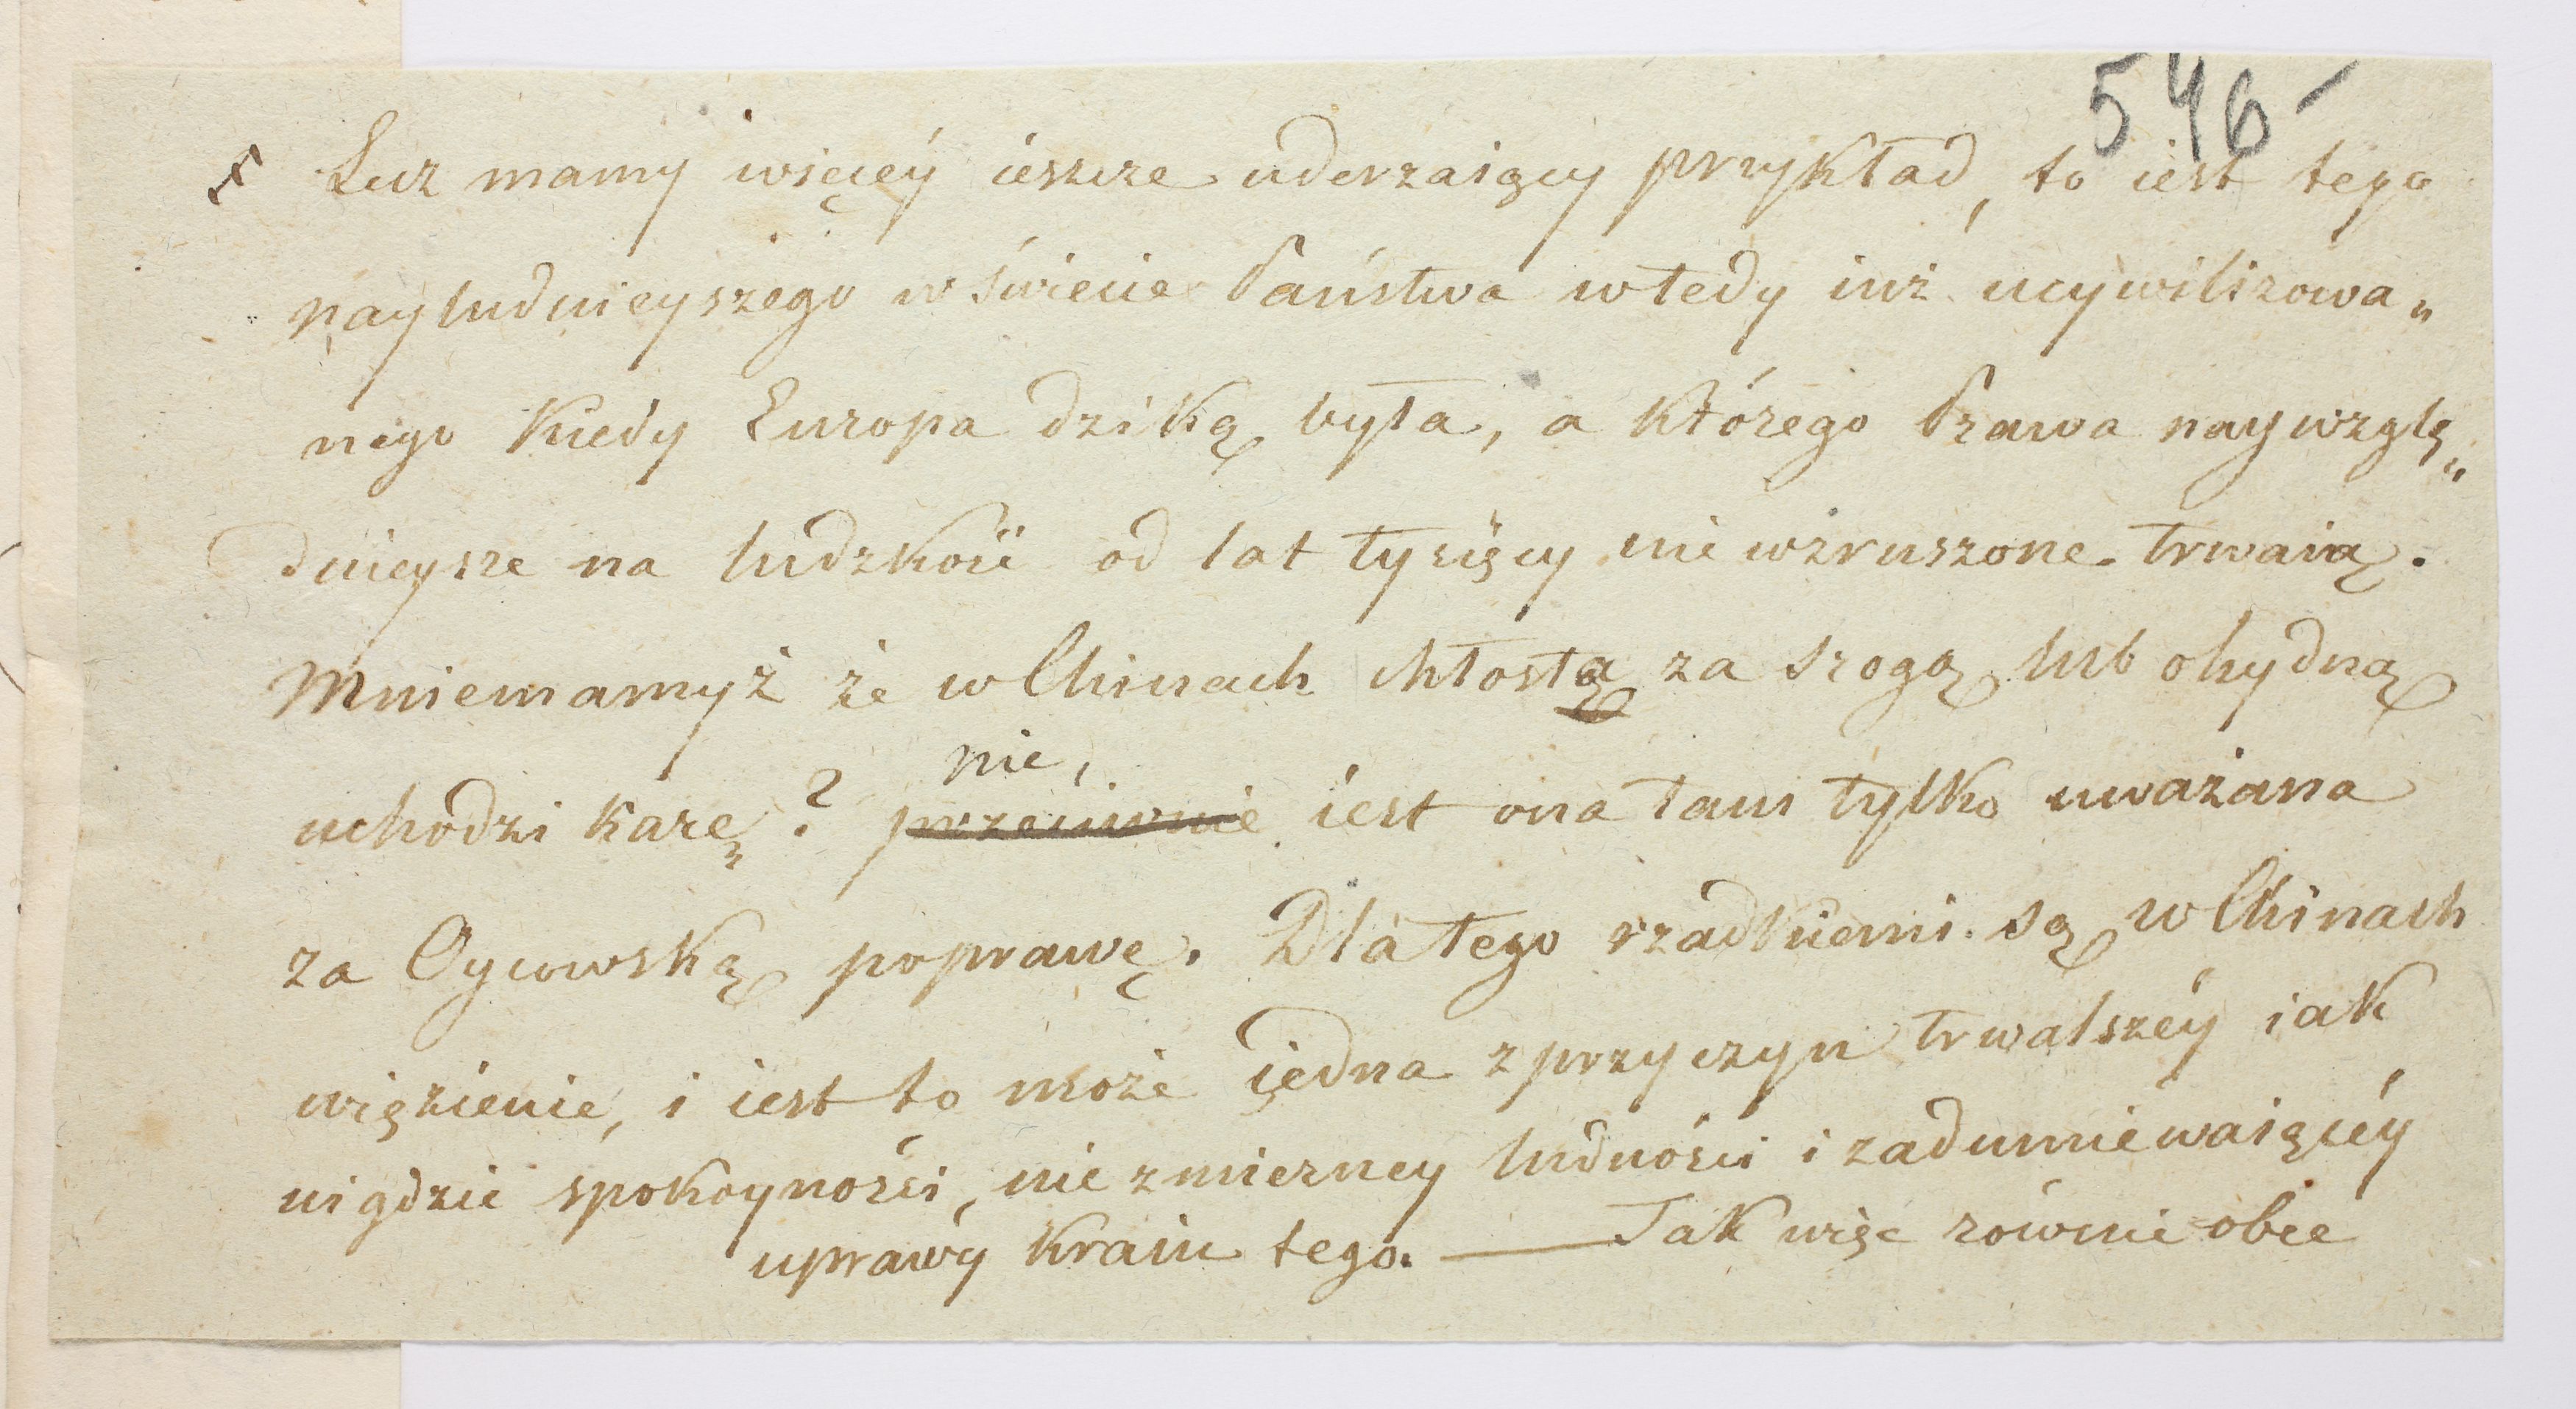 546-
Lecz mamy więcéy ieszcze uderzaiący przykład, to iest tego
nayludnieyszego w świecie Państwa wtedy iuż ucywilizowa„
nego kiedy Europa dziką była, a którego Prawa naywzglę„
dnieysze na ludzkość od lat tysiący nie wzruszone trwaią.
Mniemamyż że w Chinach chłosta za srogą lub ohydną
nie,
uchodzi karę? przeciwnie iest ona tam tylko uważana
za Oycowską poprawę. Dla tego rzadkiemi są w Chinach
więzienie, i iest to może iedna z przyczyn trwalszéy iak
nigdzie spokoyności, nie zmierney ludności i zadumiewaiącéy
uprawy kraiu tego. — Tak więc równie obce